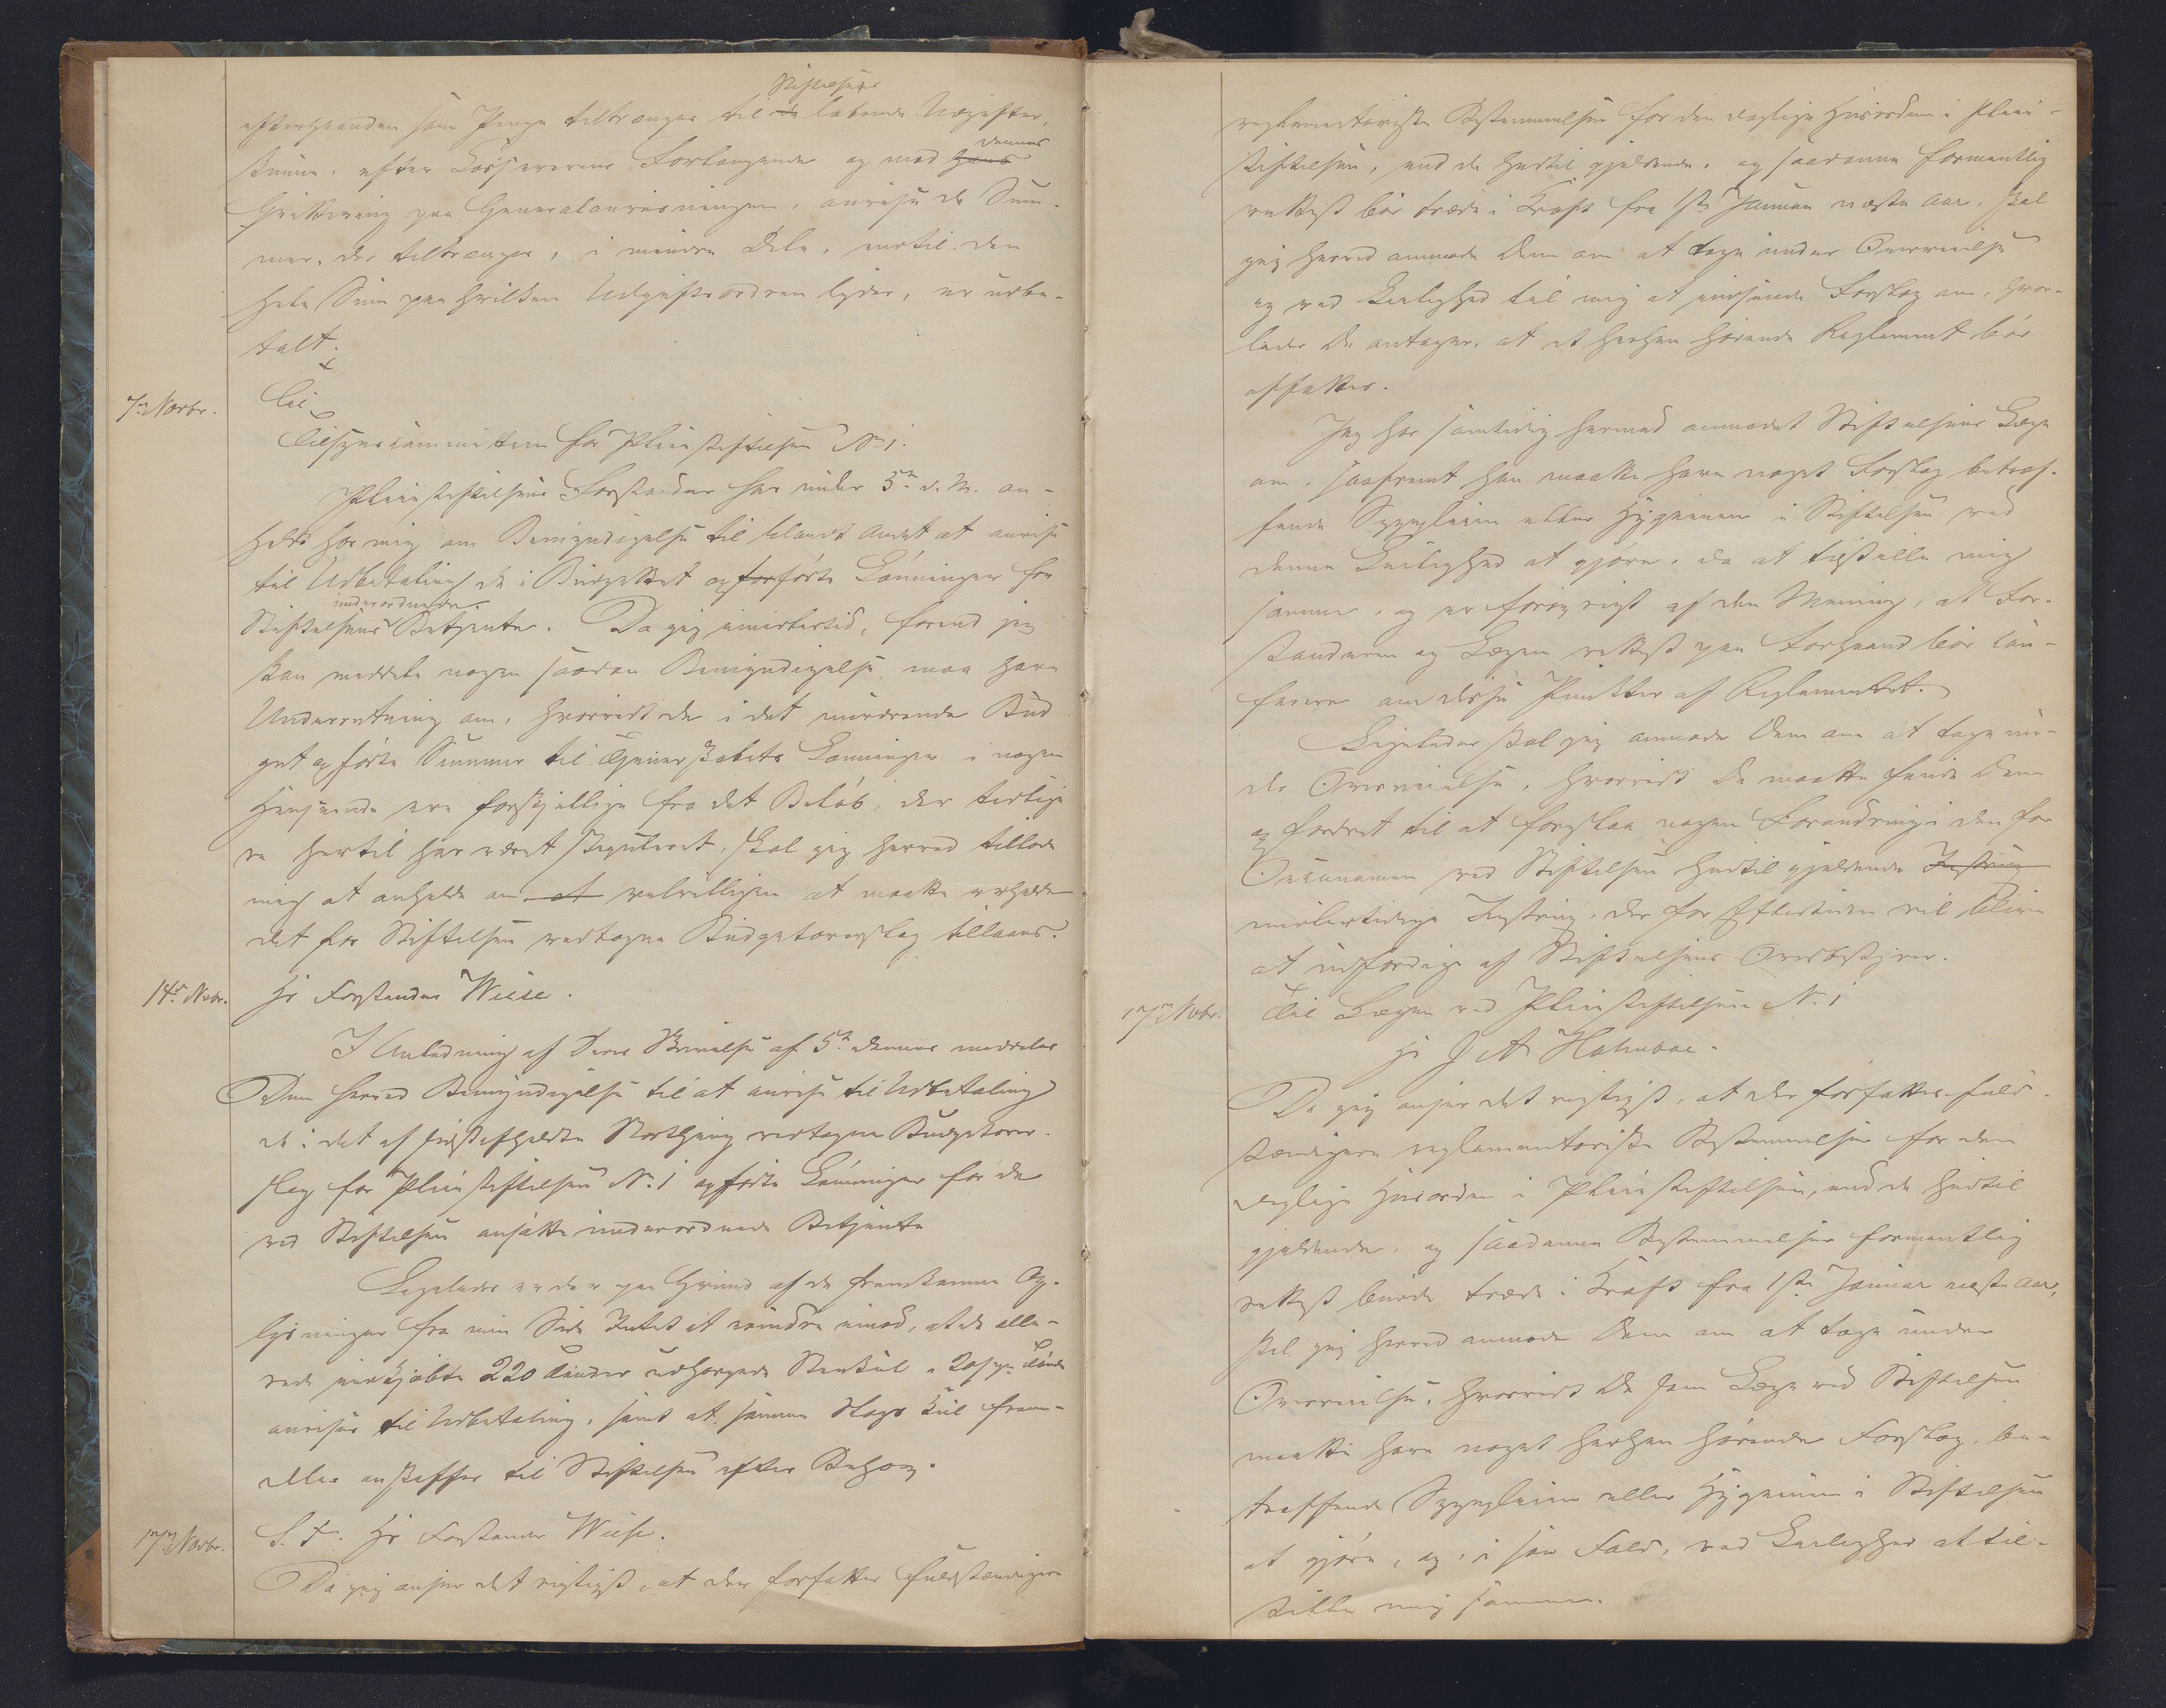 Stiftelsens
efterhaanden som Penge tiltrænges til de løbende Udgifter,
dennes
kunne, efter Kassererens Forlangende og mod hans
Qvittering paa Generalanvisningen, anvise de Sum-
mer, der tiltrænges, i mindre Dele, indtil den
hele Sum paa hvilken Udgiftsordren lyder, er udbe-
talt.
7de Novbr.
Til
Tilsynscommitteen for Pleiestiftelsen No 1.
Pleiestiftelsens Forstander har under 5te d. M. an-
holdt hos mig om Bemyndigelse til blandt Andet at anvise
til Udbetaling de i Budgettet opførte Lønninger for
underordnede
Stiftelsens Betjente. Da jeg imidlertid, forend jeg
kan meddele nogen saadan Bemyndigelse maa have
Underretning om, hvorvidt de i det nuværende Bud
get opførte Summer til Tjenerskabets Lønninger i nogen
Henseende ere forskjellige fra det Beløb, der tidlige
re hertil har været reguleret, skal jeg herved tillade
mig at anholde om at velvilligen at maatte erholde
det for Stiftelsen vedtagne Budgetoverslag tillaans.
14de Novbr.
Hr Forstander Wiese.
I Anledning af Deres Skrivelse af 5te dennes meddeles
Dem herved Bemyndigelse til at anvise til Udbetaling
de i det af sidstafholdte Storthing vedtagne Budgetover-
slag for Pleiestiftelsen No. 1 opførte Lønninger for de
ved Stiftelsen ansatte underordnede Betjente
Ligeledes er der paa Grund af de fremkomne Op-
lysninger fra min Side Intet at erindre imod, at de alle-
rede indkjøbte 220 Tønder Steenkul Tønde
anvises til Udbetaling, samt at samme Slags Kul frem-
deles anskaffes til Stiftelsen efter Behov.
17de Novbr.
S. T. Hr Forstander Wiese.
Da jeg anser det rigtigst, at der forfattes fuldstændigere
reglementariske Bestemmelser for den daglige Husorden i Pleie-
stiftelsen, end de hidtil gjeldende, og saadanne formentlig
rettest bør træde i Kraft fra 1ste Januar næste Aar, skal
jeg herved anmode Dem om at tage under Overveielse
og ved Leilighed til mig at indsende Forslag om, hvor-
ledes De antager, at et herhen hørende Reglement bør
affattes.
Jeg har samtidig hermed anmodet Stiftelsens Læge
om, saafremt han maatte have noget Forslag betræf-
fende Sygepleien eller Hygienen i Stiftelsen ved
denne Leilighed at gjøre, da at tilstille mig
samme, og er forøvrigt af den Mening, at For-
standeren og Lægen rettest paa Forhaand bør con-
ferere om disse Punkter af Reglementet.
Ligeledes skal jeg anmode Dem om at tage un-
der Overveielse, hvorvidt De maatte finde Dem
opfordret til at foreslaa nogen Forandring i den for
Oeconomen ved Stiftelsen hidtil gjeldende Instrux
midlertidige Instrux, der for Eftertiden vil blive
at udfærdige af Stiftelsens Overbestyrer.
17de Novbr.
Til Lægen ved Pleiestiftelsen No. 1
Hr J A Holmboe.
Da jeg anser det rigtigst, at der forfattes fuld-
stændigere reglementariske Bestemmelser for den
daglige Husorden i Pleiestiftelsen, end de hidtil
gjeldende, og saadanne Bestemmelser formentlig
rettest burde træde i Kraft fra 1ste Januar næste Aar,
skal jeg herved anmode Dem om at tage under
Overveielse, hvorvidt De som Læge ved Stiftelsen
maatte have noget herhen hørende Forslag, be-
træffende Sygepleien eller Hygienen i Stiftelsen
at gjøre, og, i saa Fald, ved Leilighed at til-
stille mig samme.